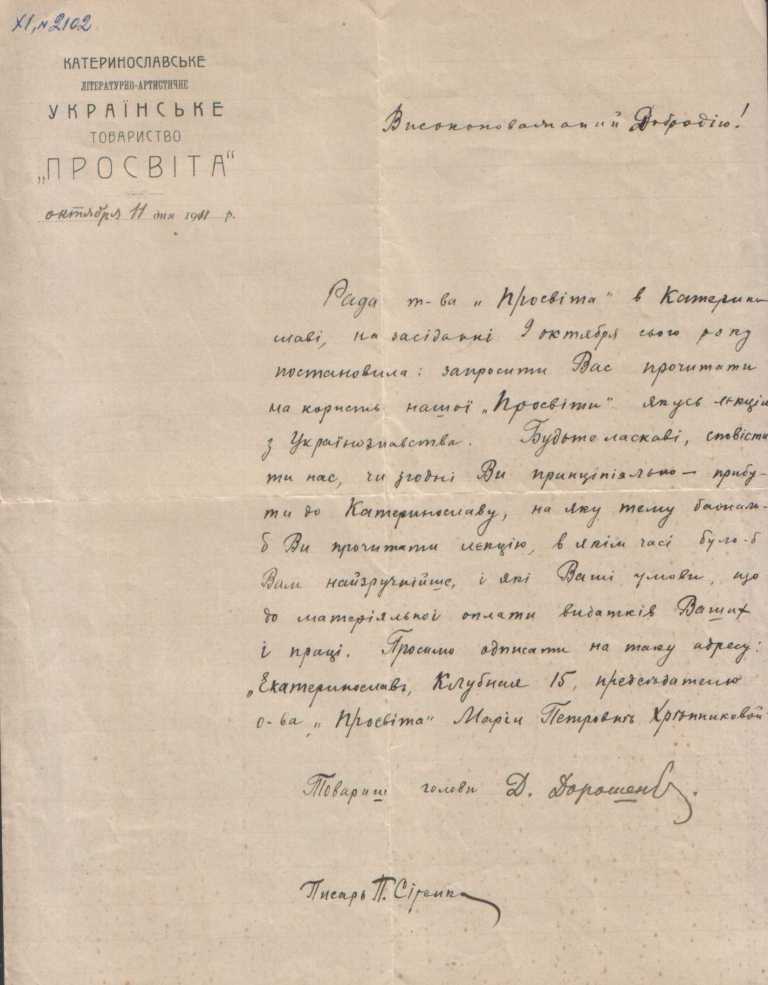 XI, н 2102
КАТЕРИНОСЛАВСЬКЕ
ЛІТЕРАТУРНО-АРТИСТИЧНЕ
УКРАЇНСЬКЕ
ТОВАРИСТВО
„ПРОСВІТА"
октября 11 дня 1911 р.
Високоповажаний Добродію!
Рада т-ва „Просвіта" в Катерино
славі, на засіданні 9 октября сього року
постановила: запросити Вас прочитати
на користь нашої „Просвіти" якусь лекцію
з Українознавства. Будьте ласкаві, сповісти
ти нас, чи згодні Ви принціпіяльно прибу-
ти до Катеринославу, на яку тему бажали-
б Ви прочитати лекцію, в якім часі було-б
Вам найзручнійше, і які Ваші умови що
до матеріяльної оплати видатків Ваших
і праці. Просимо одписати на таку адресу:
„Екатеринославъ, Клубная 15, председателю
о-ва „Просвіта" Маріи Петровнѣ
Товариш голови Д. Дорошенко.
Писарь П.